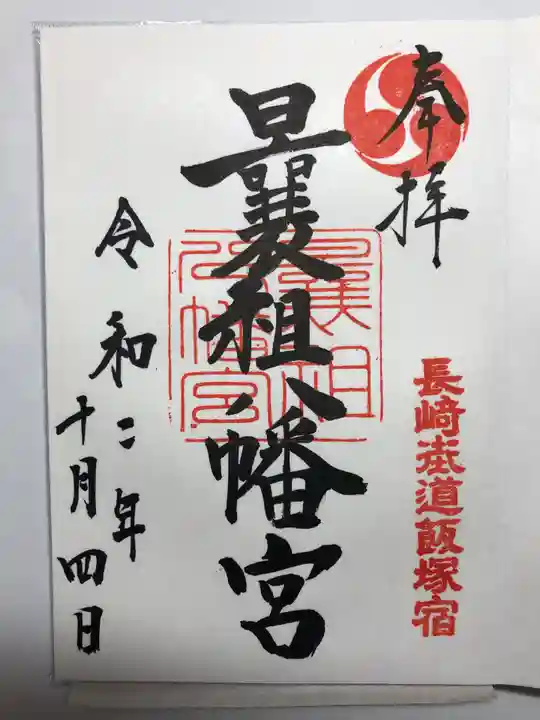 奉拝
長崎街道飯塚宿
曩祖八幡宮
曩祖
八幡宮
令和二年
十月四日